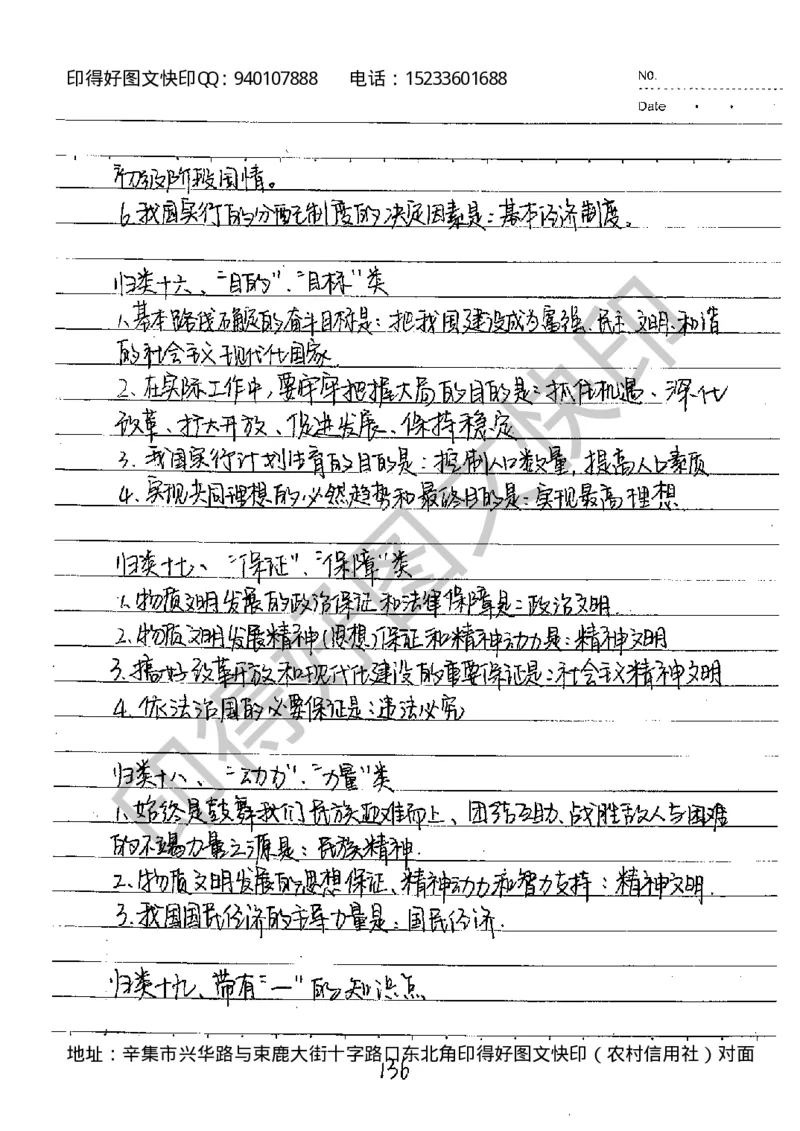 印得好图文快印QQ：940107888 电话：15233601688
NO.
Date
初级阶段国情。
6.我国实行的分配制度的决定因素是：基本经济制度。
归类十六、“目的”、“目标”类
1.基本路线确定的奋斗目标是：把我国建设成为富强、民主、文明、和谐
的社会主义现代化国家.
2.在实际工作中，要牢牢把握大局的目的是：抓住机遇、深化
改革、扩大开放、促进发展、保持稳定
3.我国实行计划生育的目的是：控制人口数量，提高人口素质
4.实现共同理想的必然趋势和最终目的是：实现最高理想
归类十七、“保证”、“保障”类
1.物质文明发展的政治保证和法律保障是：政治文明.
2.物质文明发展精神(思想)保证和精神动力是：精神文明
3.搞好改革开放和现代化建设的重要保证是：社会主义精神文明
4.依法治国的必要保证是：违法必究
归类十八、“动力”、“力量”类
1.始终是鼓舞我们民族迎难而上、团结互助、战胜敌人与困难
的不竭力量之源是：民族精神.
2.物质文明发展的思想保证、精神动力和智力支持：精神文明.
3.我国国民经济的主导力量是：国民经济.
归类十九、带有“一”的知识点
地址：辛集市兴华路与束鹿大街十字路口东北角印得好图文快印（农村信用社）对面
136
印得好图文快印